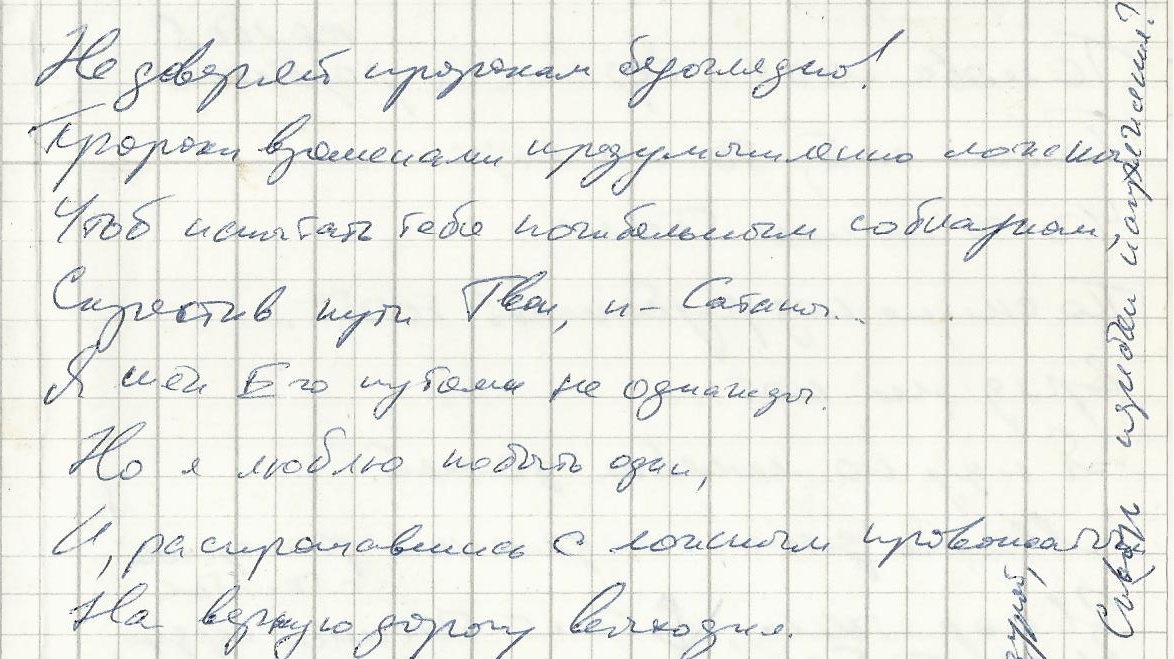 Не доверяй пророкам безоглядно!
Пророки временами предумышленно ложны,
Чтоб испытать тебя погибельным соблазном,
Скрестив пути Твои, и – Сатаны...
Я шёл Его путями не однажды.
Но я люблю побыть один,
И, распрощавшись с ложным провожатым,
На верную дорогу выходил.
избави